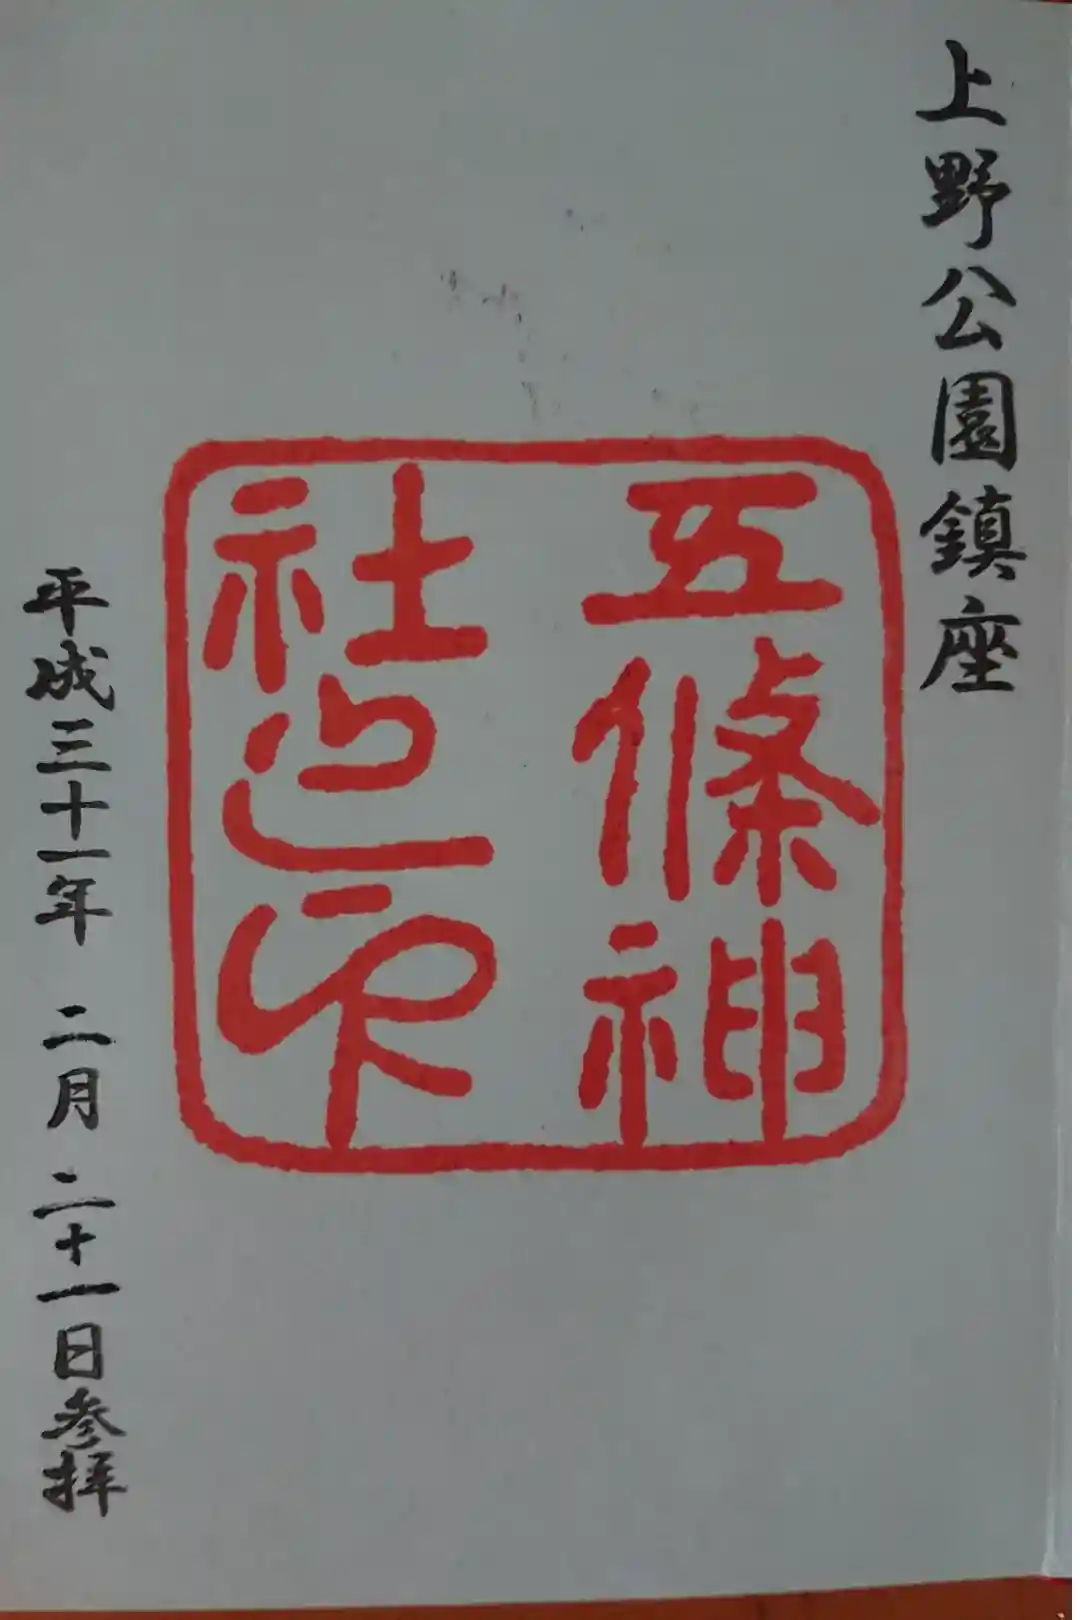 上野公園鎮座
五條神
社之印
平成三十一年 二月 二十一日参拝